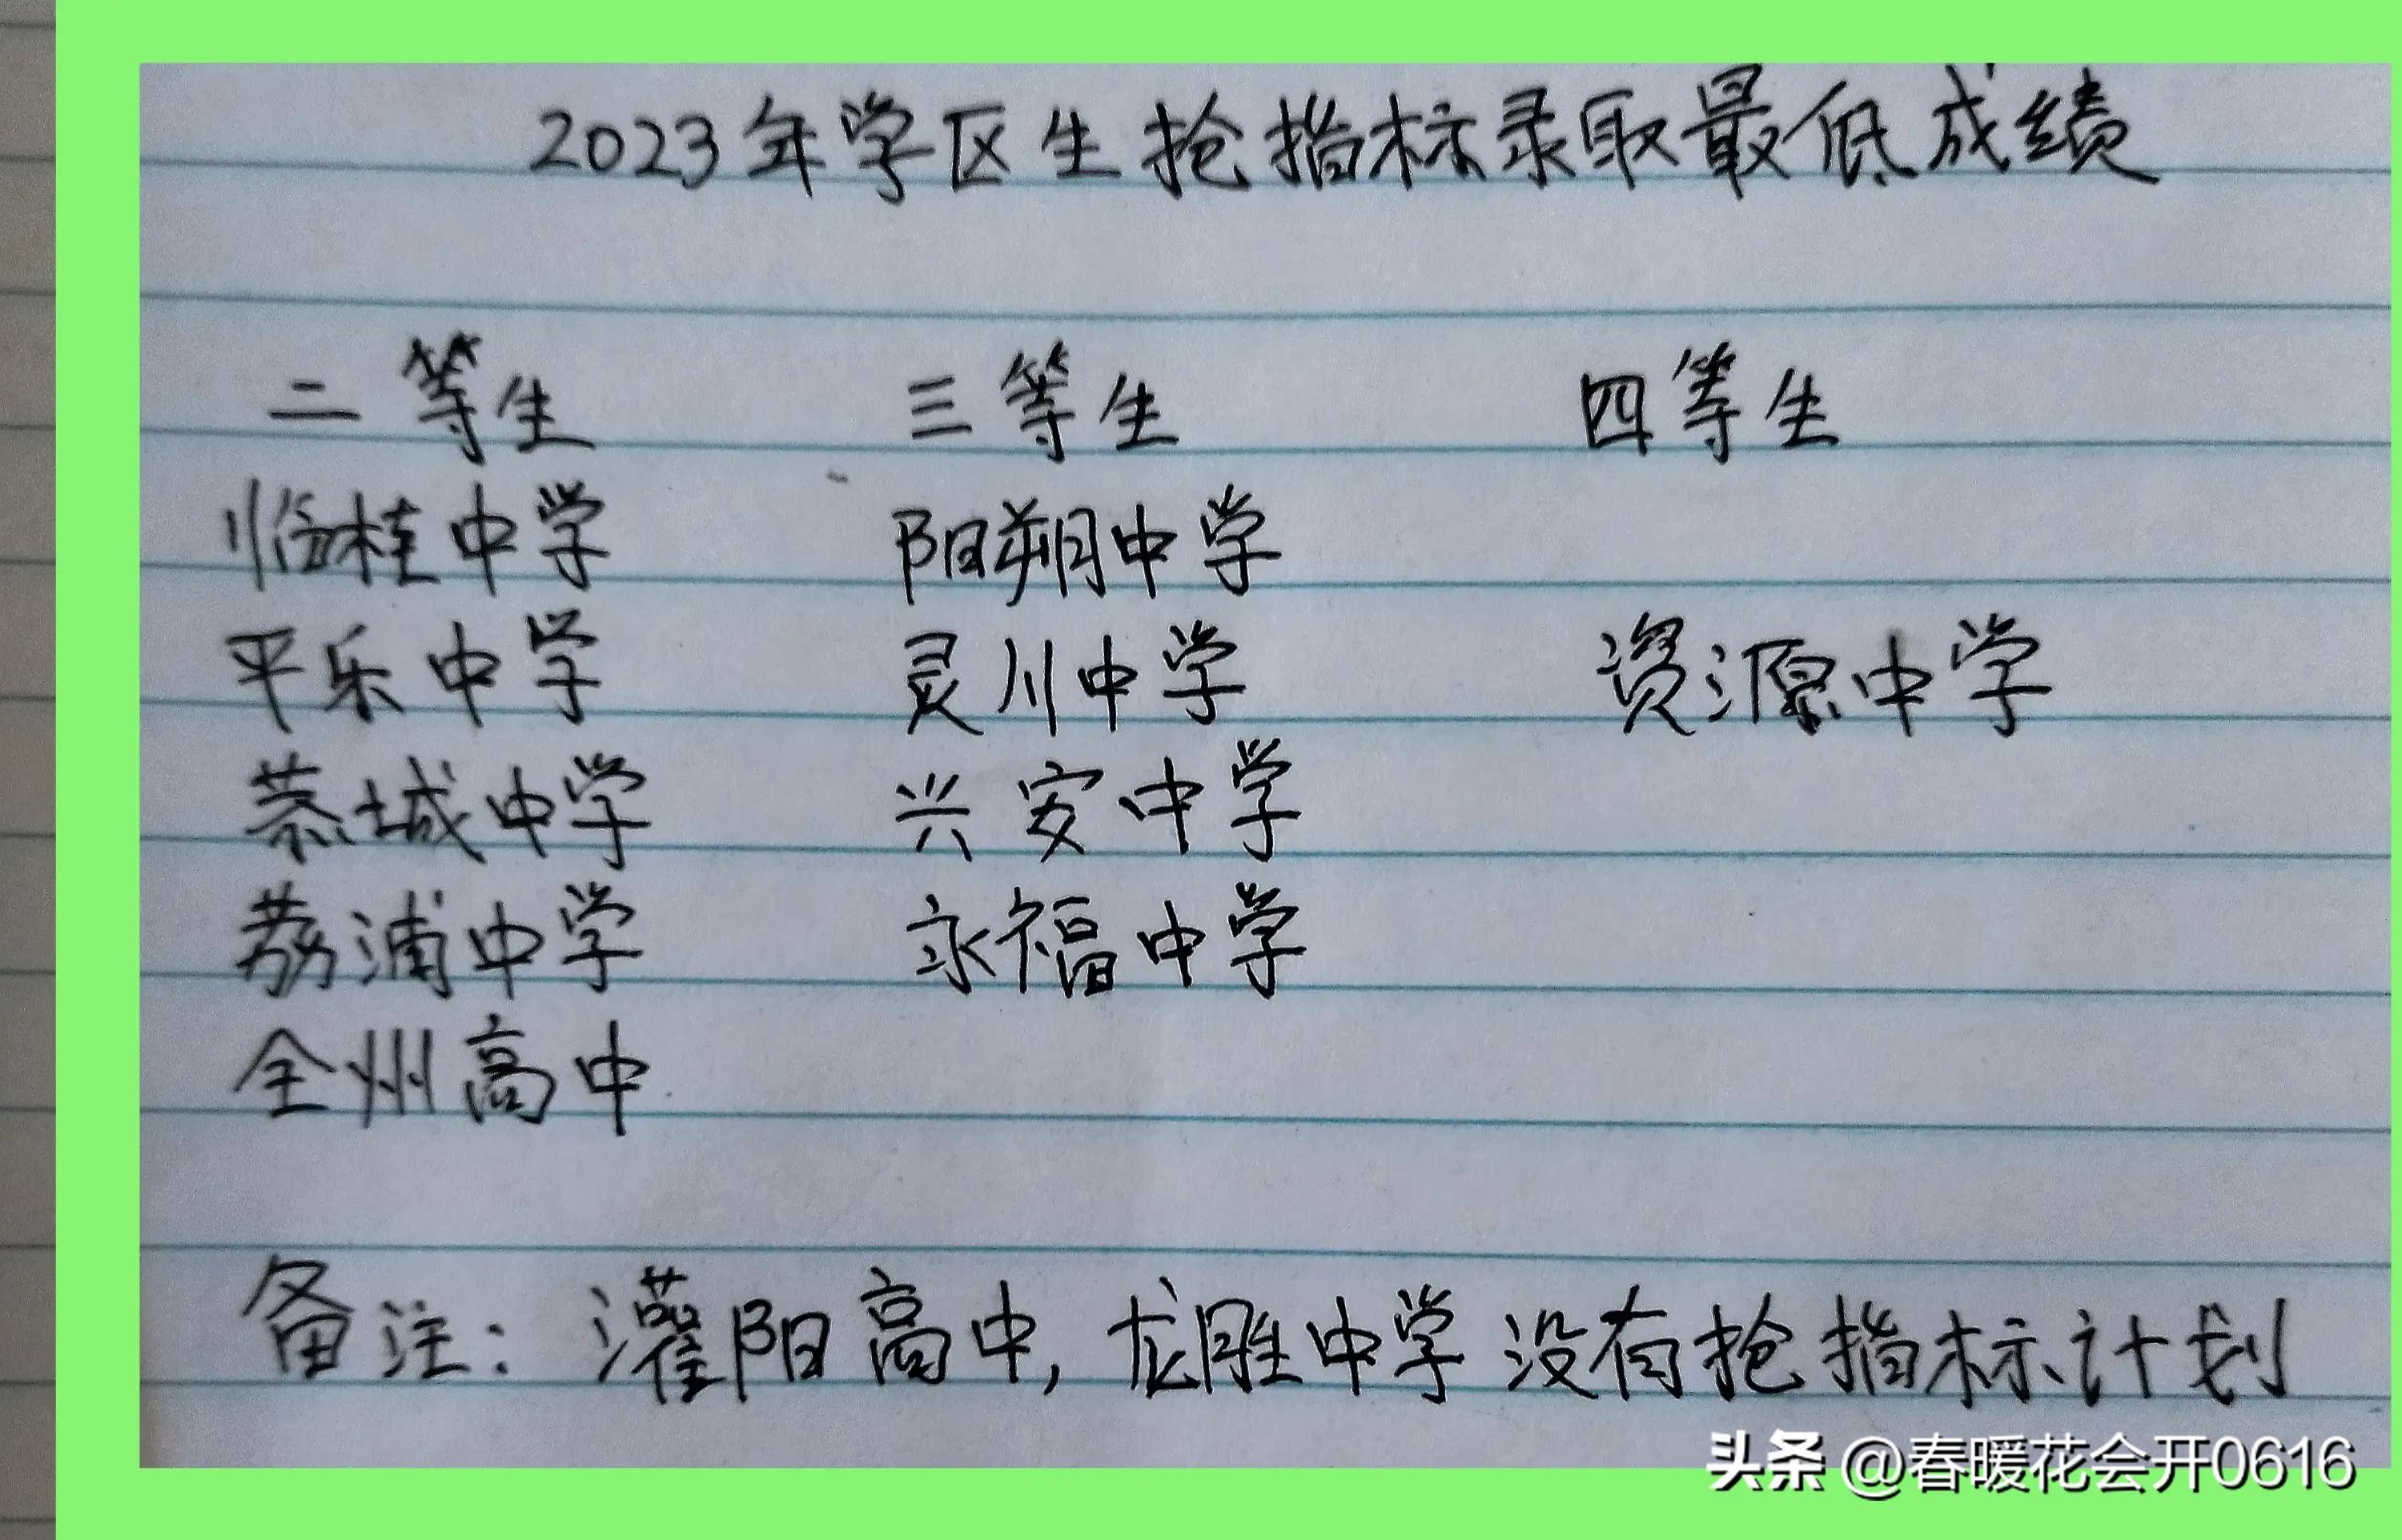 2023年学区生抢指标录取最低成绩
二等生 三等生 四等生
临桂中学 阳朔中学
平乐中学 灵川中学 资源中学
恭城中学 兴安中学
荔浦中学 永福中学
全州高中
备注：灌阳高中，龙胜中学没有抢指标计划
头条 @春暖花会开0616